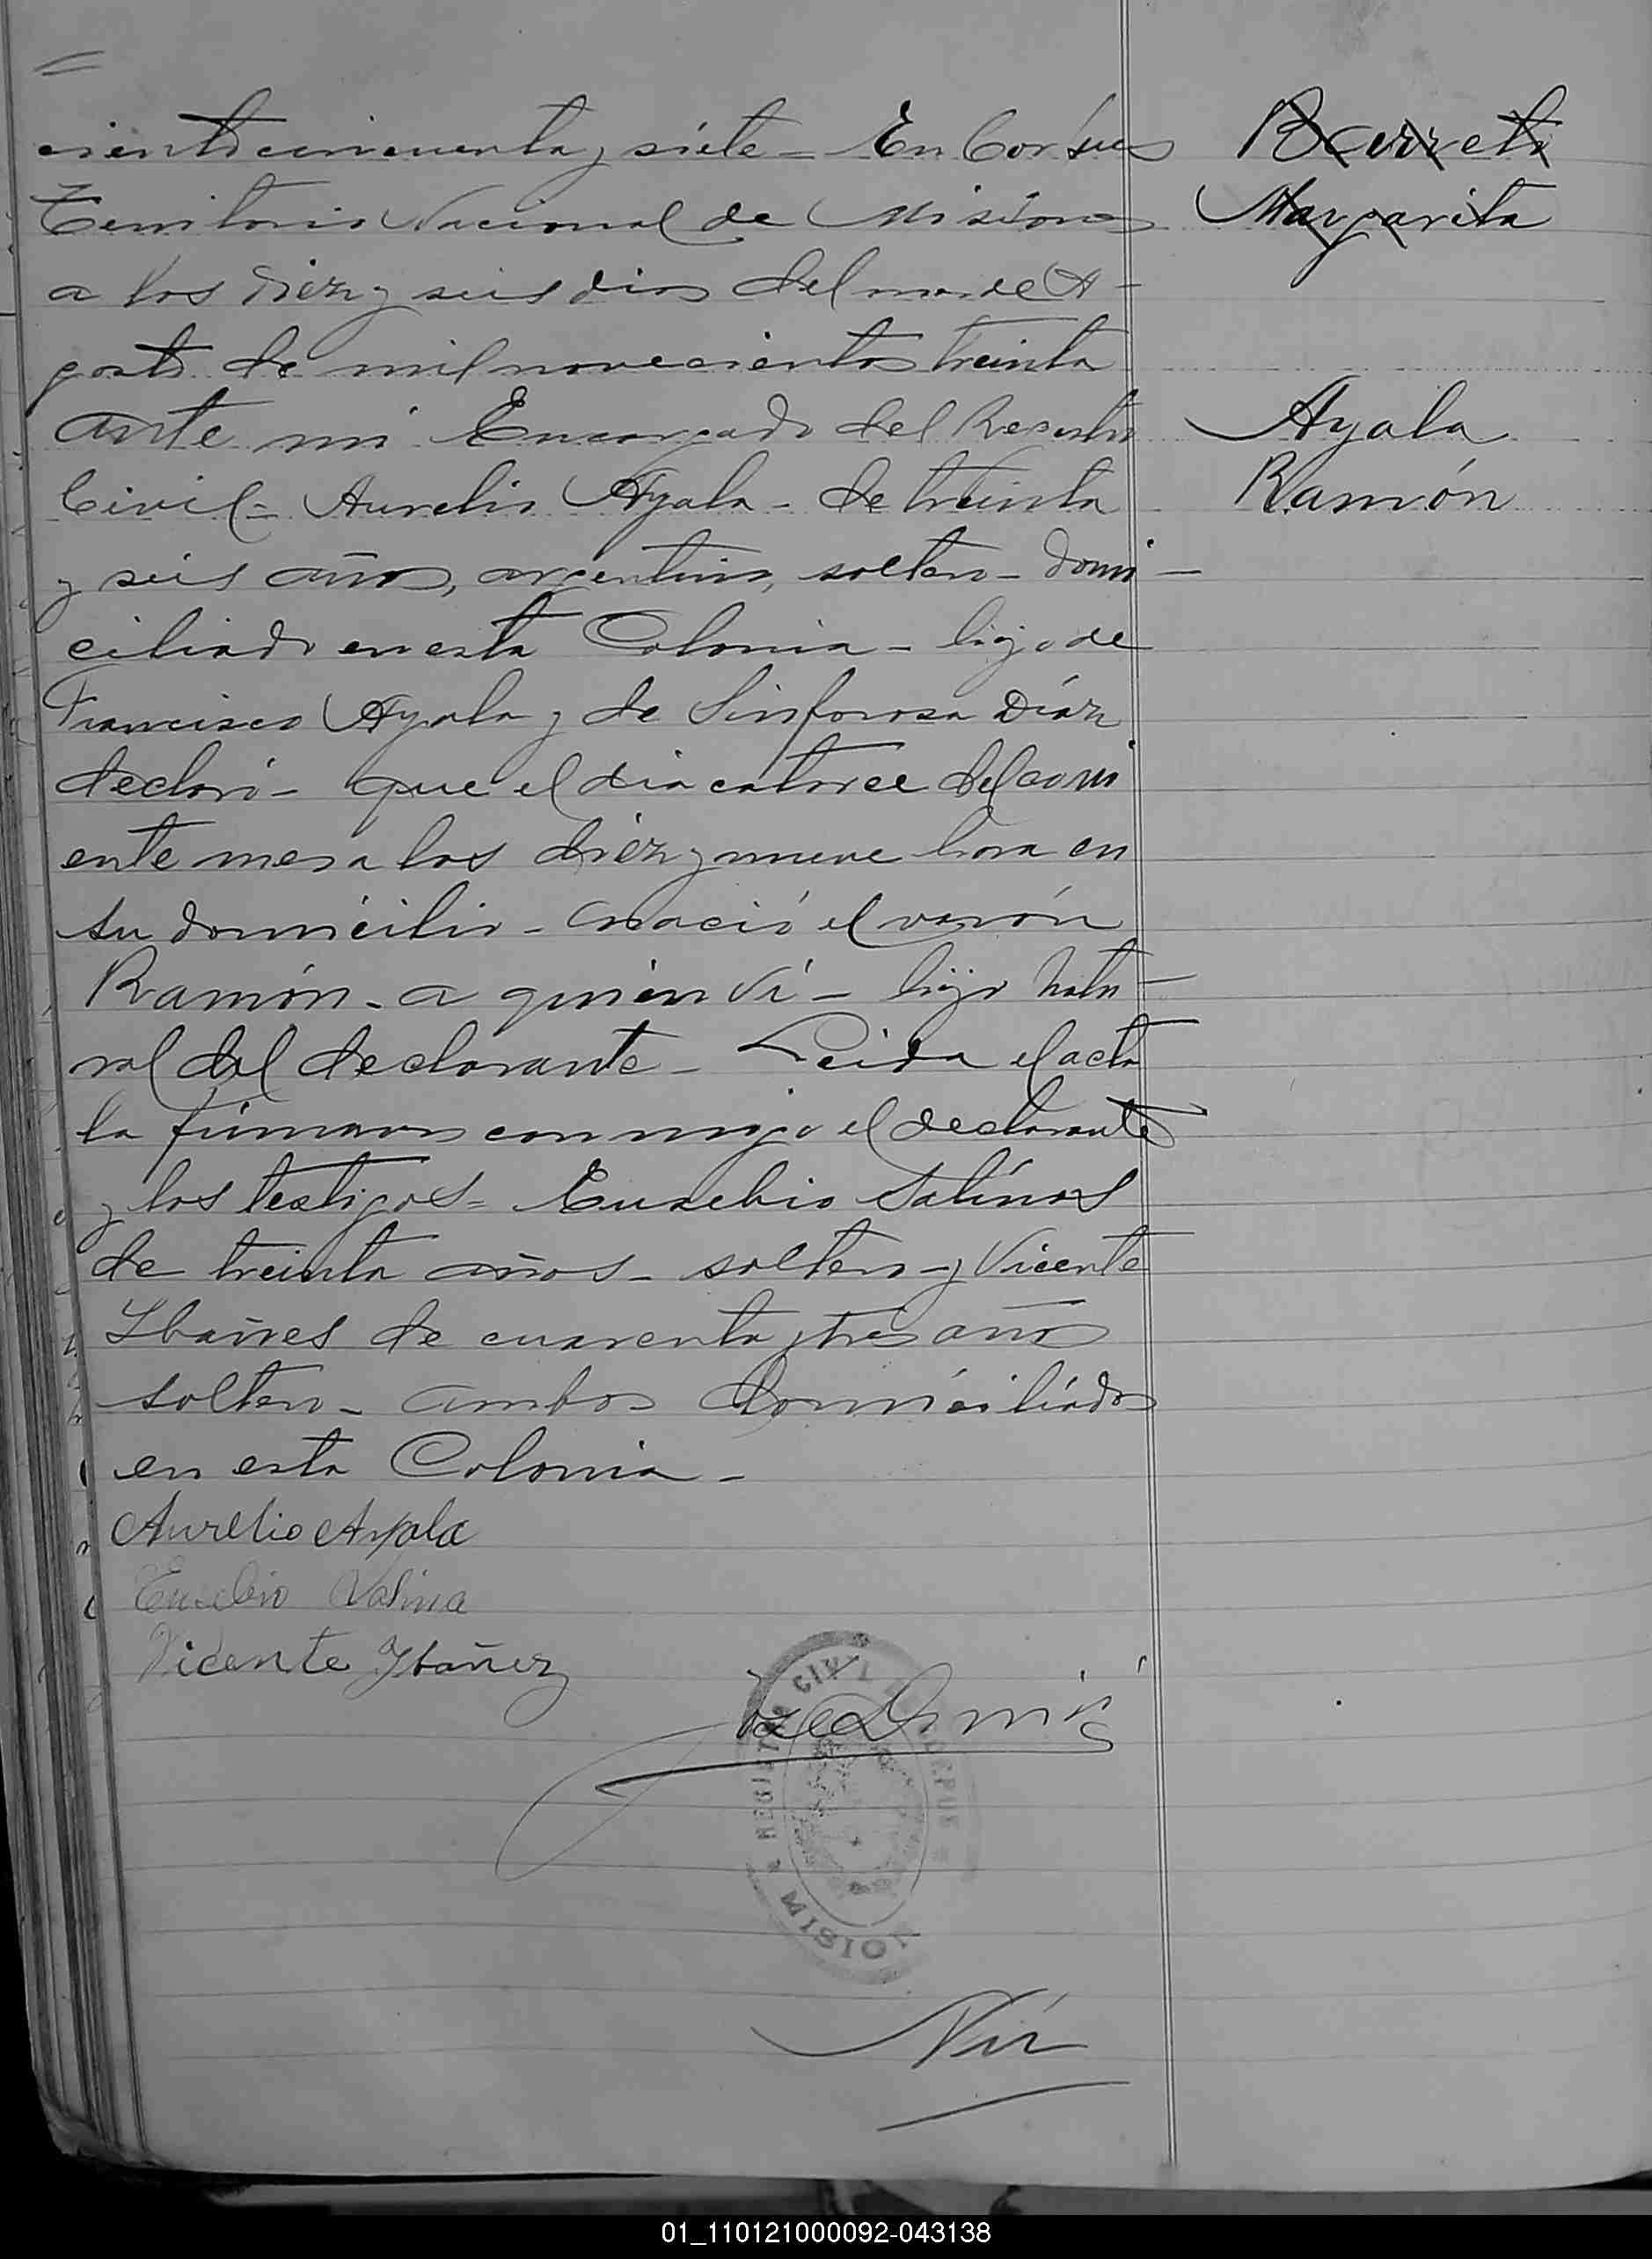 ciento cincuenta y siete = En Corpus
Territorio Nacional de Misiones
a los diez y seis dias del mes de A-
gosto de mil novecientos treinta
ante mi Encargado del Registro
Civil = Aurelio Ayala - de treinta
y seis años, argentino, soltero - domi-
ciliado en esta Colonia - hijo de
Francisco Ayala y de Sinforosa Díaz
declaró - que el dia catorce del corri
ente mes a las diez y nueve hora en
su domicilio - nació el varón
Ramón - a quién ví - hijo natu-
ral del declarante - Leida el acta
la firmaron conmigo el declarante
y los testigos = Eusebio Salinas
de treinta años - soltero - y Vicente
Ibañes de cuarenta y tres años
soltero - ambos domiciliados
en esta Colonia -
Aurelio Ayala
Eusebio Salina
Vicente Ybañez
REGISTRO CIVIL CORPUS
MISION
Barreto
Margarita
Ayala
Ramón
01_110121000092-043138